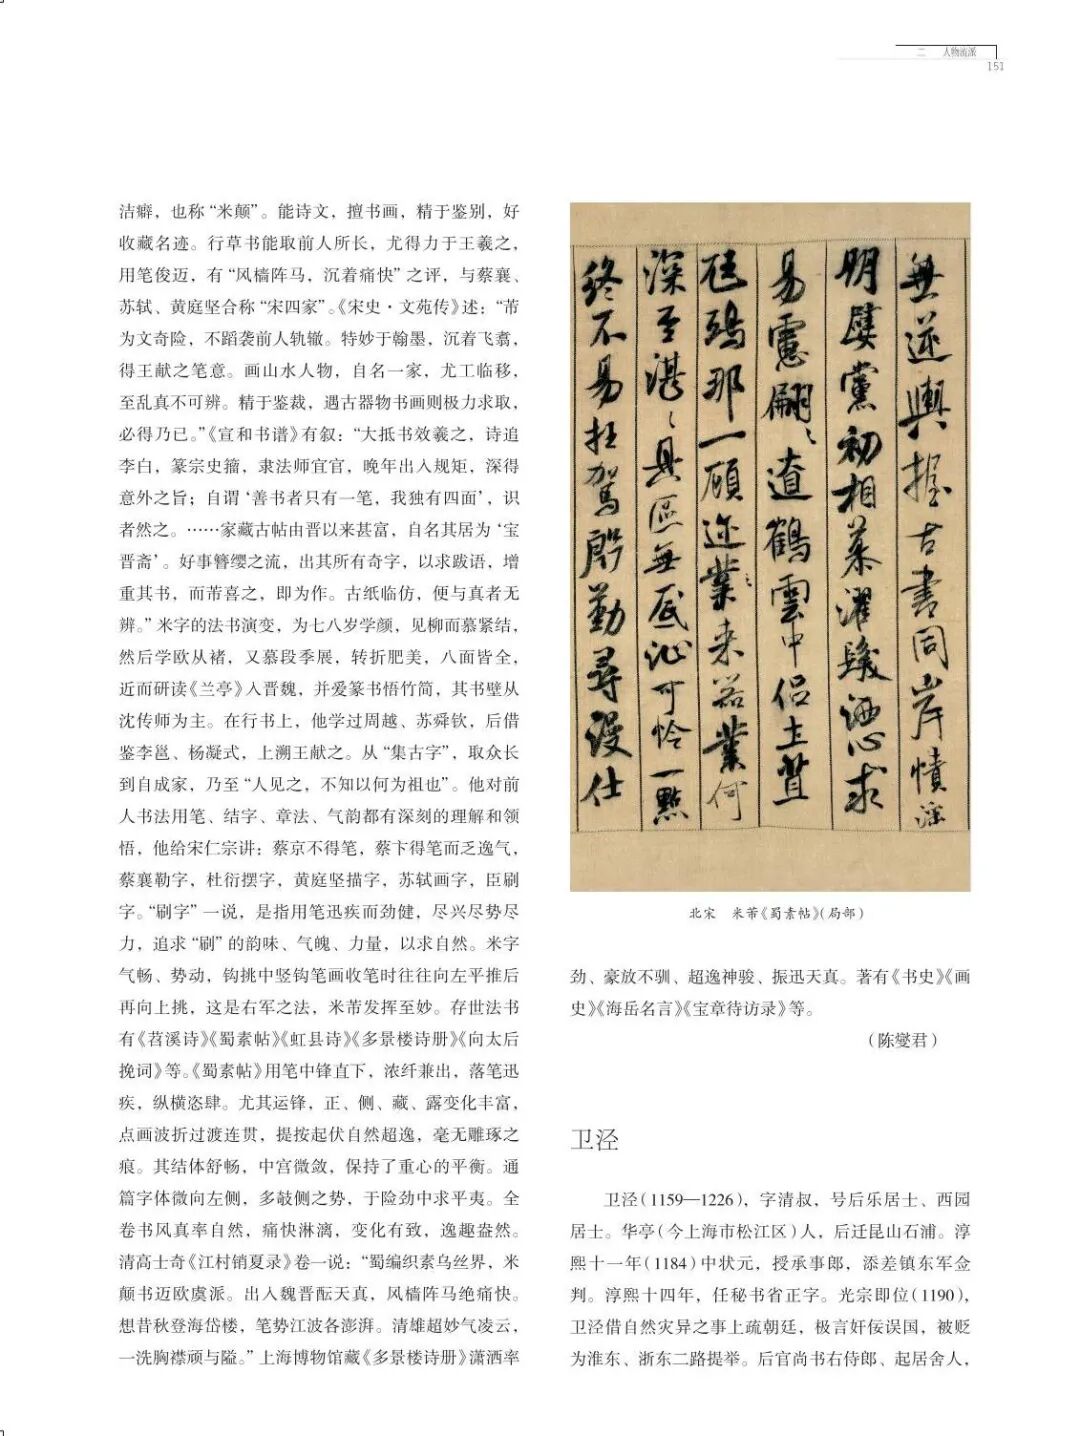 二 人物流派
151
洁癖，也称“米颠”。能诗文，擅书画，精于鉴别，好
收藏名迹。行草书能取前人所长，尤得力于王羲之，
用笔俊迈，有“风樯阵马，沉着痛快”之评，与蔡襄、
苏轼、黄庭坚合称“宋四家”。《宋史·文苑传》述：“芾
为文奇险，不蹈袭前人轨辙。特妙于翰墨，沉着飞翥，
得王献之笔意。画山水人物，自名一家，尤工临移，
至乱真不可辨。精于鉴裁，遇古器物书画则极力求取，
必得乃已。”《宣和书谱》有叙：“大抵书效羲之，诗追
李白，篆宗史籀，隶法师宜官，晚年出入规矩，深得
意外之旨；自谓‘善书者只有一笔，我独有四面’，识
者然之。……家藏古帖由晋以来甚富，自名其居为‘宝
晋斋’。好事簪缨之流，出其所有奇字，以求跋语，增
重其书，而芾喜之，即为作。古纸临仿，便与真者无
辨。”米字的法书演变，为七八岁学颜，见柳而慕紧结，
然后学欧从褚，又慕段季展，转折肥美，八面皆全，
近而研读《兰亭》入晋魏，并爱篆书悟竹简，其书壁从
沈传师为主。在行书上，他学过周越、苏舜钦，后借
鉴李邕、杨凝式，上溯王献之。从“集古字”，取众长
到自成家，乃至“人见之，不知以何为祖也”。他对前
人书法用笔、结字、章法、气韵都有深刻的理解和领
悟，他给宋仁宗讲：蔡京不得笔，蔡卞得笔而乏逸气，
蔡襄勒字，杜衍摆字，黄庭坚描字，苏轼画字，臣刷
字。“刷字”一说，是指用笔迅疾而劲健，尽兴尽势尽
力，追求“刷”的韵味、气魄、力量，以求自然。米字
气畅、势动，钩挑中竖钩笔画收笔时往往向左平推后
再向上挑，这是右军之法，米芾发挥至妙。存世法书
有《苕溪诗》《蜀素帖》《虹县诗》《多景楼诗册》《向太后
挽词》等。《蜀素帖》用笔中锋直下，浓纤兼出，落笔迅
疾，纵横恣肆。尤其运锋，正、侧、藏、露变化丰富，
点画波折过渡连贯，提按起伏自然超逸，毫无雕琢之
痕。其结体舒畅，中宫微敛，保持了重心的平衡。通
篇字体微向左侧，多攲侧之势，于险劲中求平夷。全
卷书风真率自然，痛快淋漓，变化有致，逸趣盎然。
清高士奇《江村销夏录》卷一说：“蜀编织素乌丝界，米
颠书迈欧虞派。出入魏晋酝天真，风樯阵马绝痛快。
想昔秋登海岱楼，笔势江波各澎湃。清雄超妙气凌云，
一洗胸襟顽与隘。”上海博物馆藏《多景楼诗册》潇洒率
無迹輿握古書同岸幘淫
朋嬖黨初相慕濯髮洒心求
易慮翩〻遼鶴雲中侣土苴
尫鴟那一顧迩業来器業何
深至湛〻具區無底沚可怜一點
終不易枉駕殷勤尋漫仕
北宋 米芾《蜀素帖》（局部）
劲、豪放不驯、超逸神骏、振迅天真。著有《书史》《画
史》《海岳名言》《宝章待访录》等。
（陈燮君）
卫泾
卫泾（1159—1226），字清叔，号后乐居士、西园
居士。华亭（今上海市松江区）人，后迁昆山石浦。淳
熙十一年（1184）中状元，授承事郎，添差镇东军佥
判。淳熙十四年，任秘书省正字。光宗即位（1190），
卫泾借自然灾异之事上疏朝廷，极言奸佞误国，被贬
为淮东、浙东二路提举。后官尚书右侍郎、起居舍人，